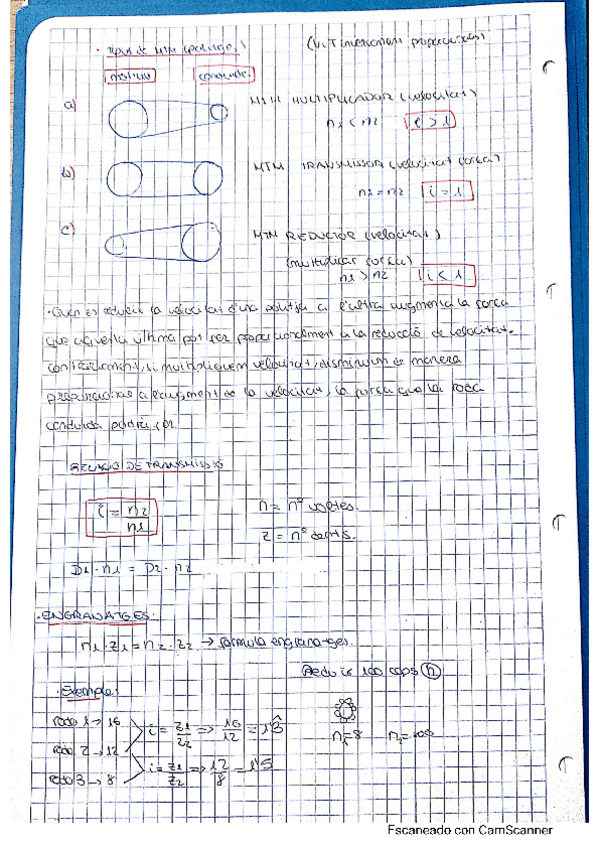 · Tipus de MTM (politges)
(V i T inversament proporcionals)
motriu conduïda.
a) MTM MULTIPLICADOR (velocitat)
n1 < n2 i > 1
b) MTM TRANSMISSOR (velocitat força)
n1 = n2 i = 1
c) MTM REDUCTOR (velocitat)
(multiplicar força)
n1 > n2 i < 1
· Quan es redueix la velocitat d'una politja a l'altra augmenta la força
que aquesta ultima pot fer proporcionalment a la reducció de velocitat.
contràriament, si multipliquem velocitat, disminuim de manera
proporcional a l'augment de la velocitat, la força que la roda
conduida podrà fer
RELACIÓ DE TRANSMISSIÓ
i = n2/n1
n = nº voltes.
z = nº dents.
D1 · n1 = D2 · n2
· ENGRANATGES:
n1 · z1 = n2 · z2 → formula engranatges.
100 cops n
· Exemple:
roda 1 → 16
i = z1/z2 => 16/12 = 1'3
roda 2 → 12
i = z1/z2 => 12/8 = 1'5
roda 3 → 8
Escaneado con CamScanner